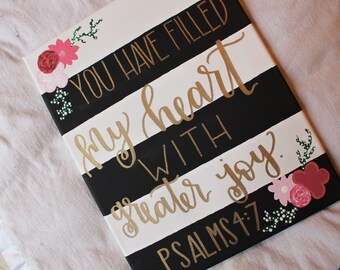 YOU HAVE FILLED
My heart
WITH
greater joy.
PSALMS 4:7